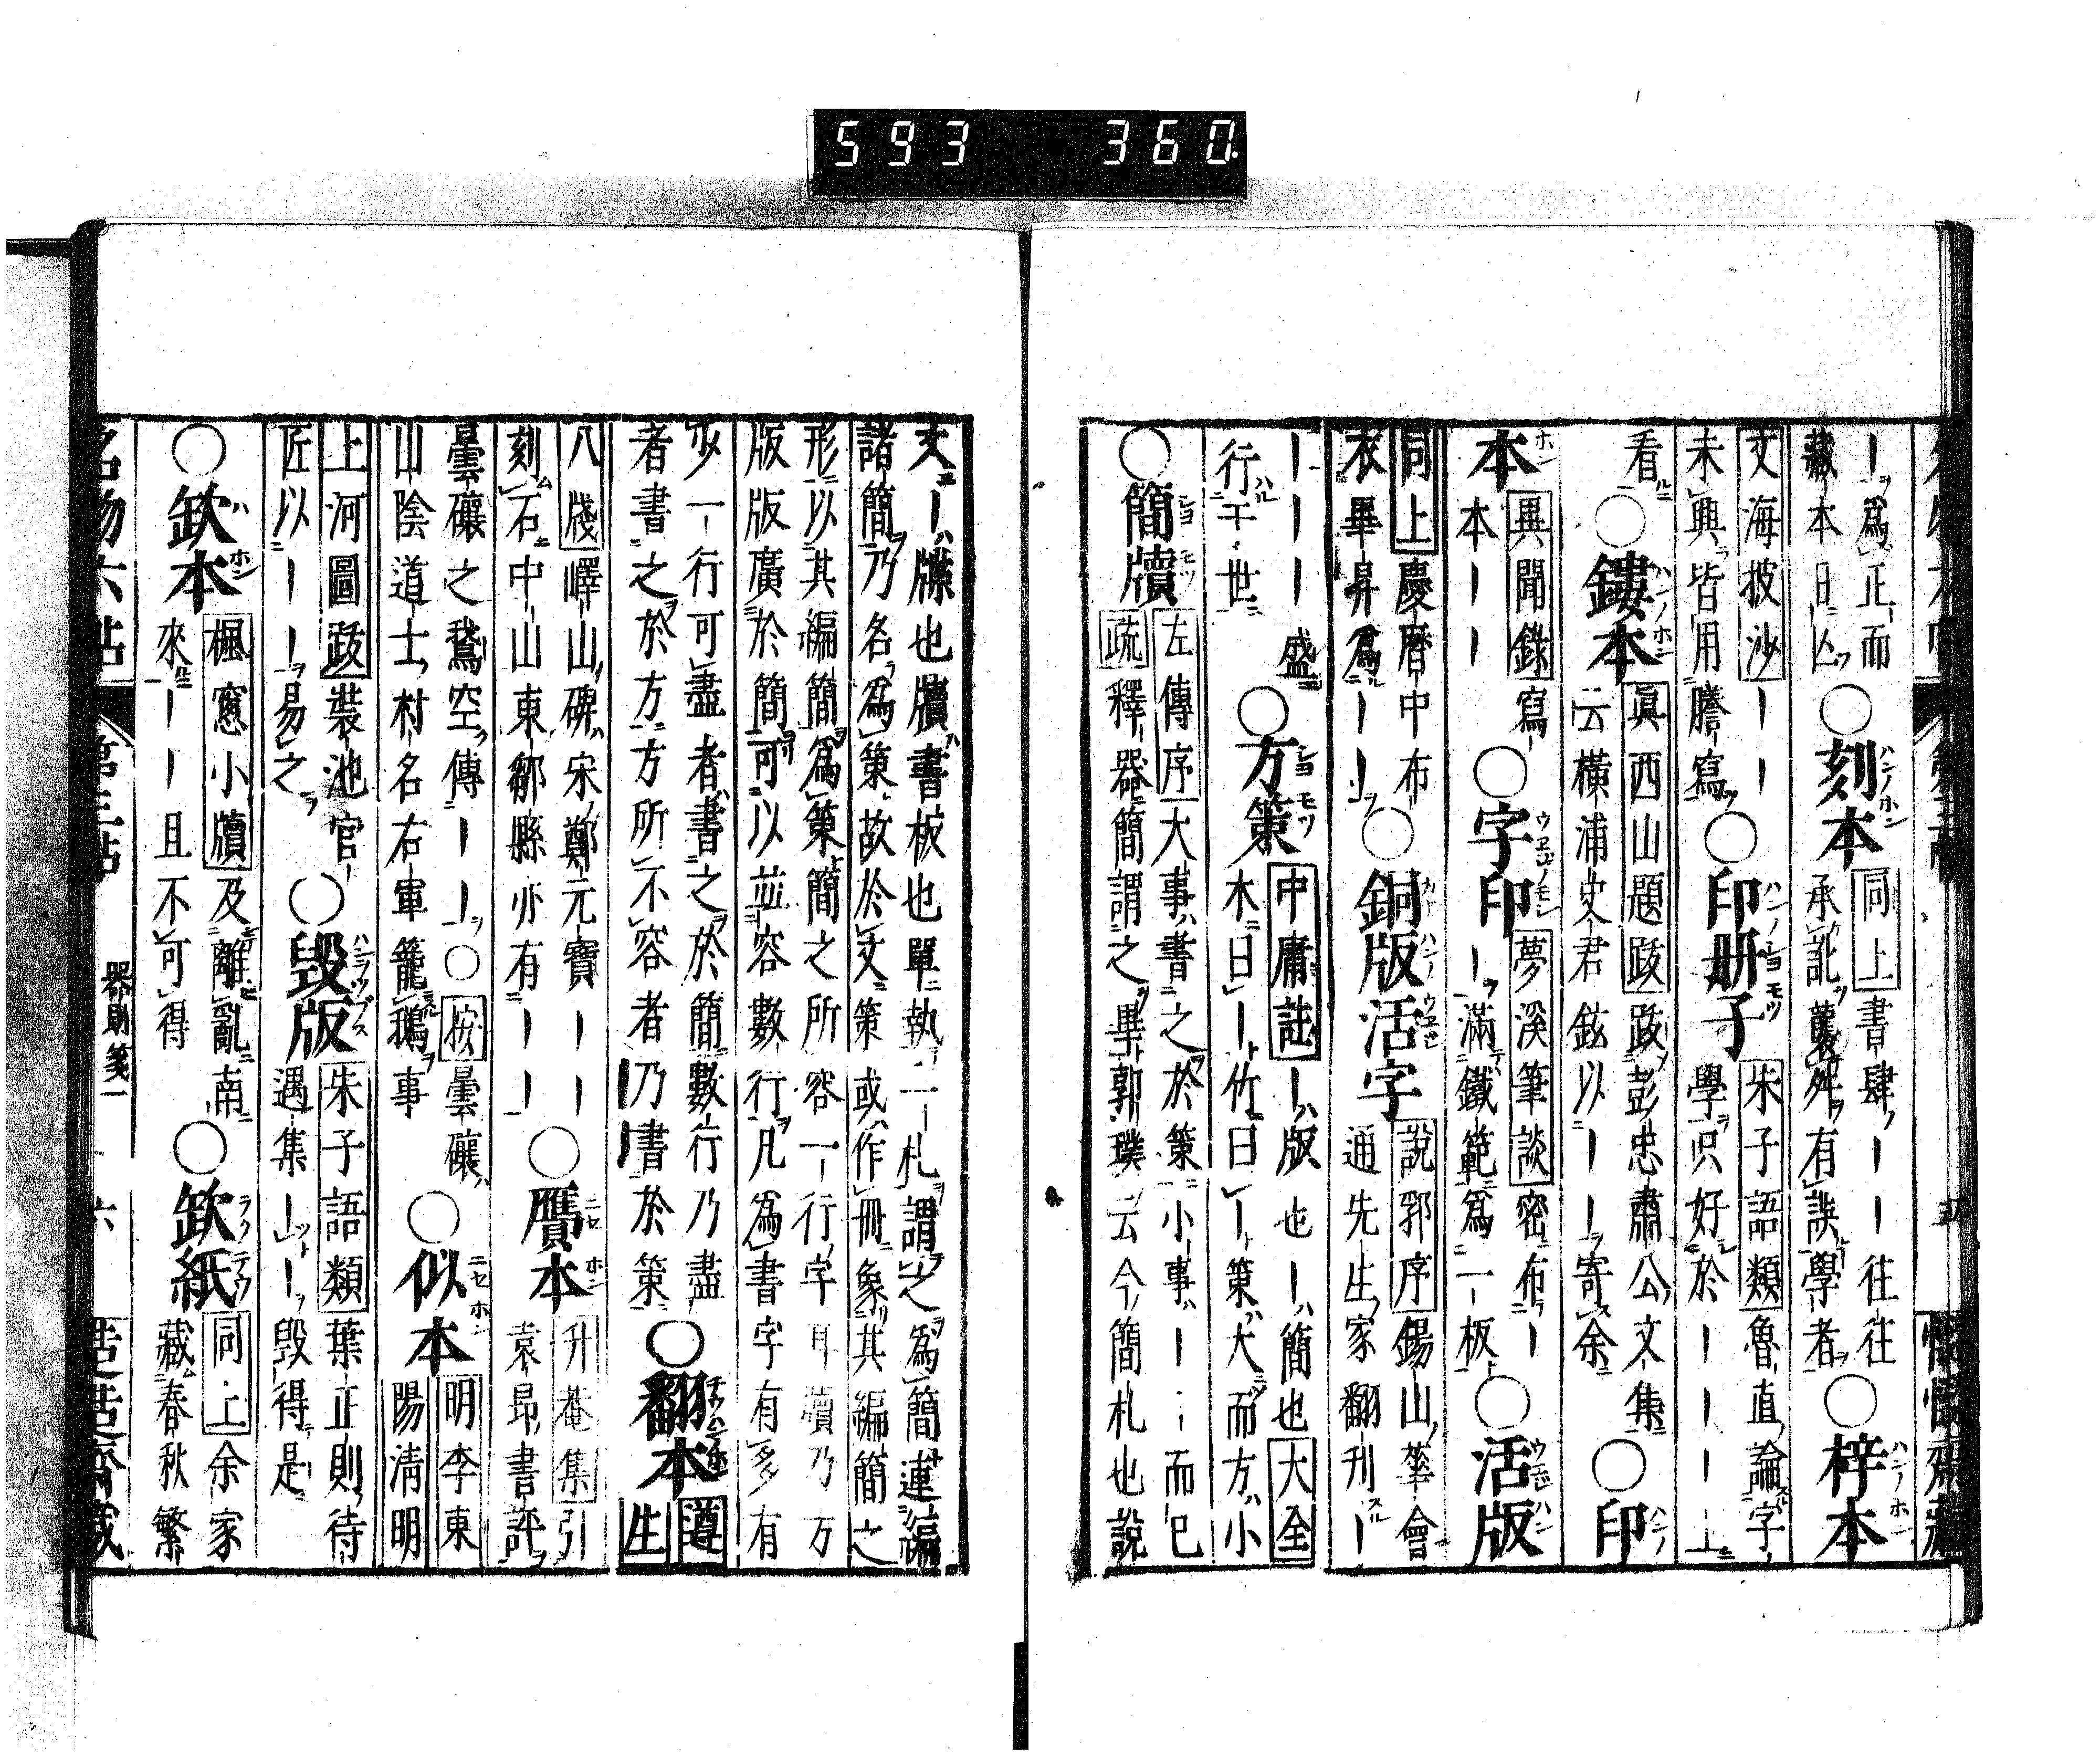 593 360
｜爲正而
藏本曰亾
○刻本
同上書肆｜｜往往
承訛襲舛有誤學者
○梓本
文海披沙｜｜
未興皆用謄寫
○印册子
朱子語類魯直論字
學只好於｜｜｜上
看
○鏤本
眞西山題跋跋彭忠肅公文集
云橫浦史君鉉以｜｜寄余
○印
本
異聞錄寫
本｜｜
○字印
夢溪筆談密布｜
｜滿鐵範爲一板
○活版
同上慶曆中布
衣畢昇爲｜｜
○銅版活字
說郛序錫山華會
通先生家翻刊｜
｜｜｜｜盛
行于世
○方策
中庸註｜版也｜簡也大全
木曰｜竹曰｜策大而方小
○簡牘
左傳序大事書之於策小事｜｜而已
疏釋器簡謂之畢郭璞云今簡札也說
文｜牒也牘書板也單執一札謂之爲簡連編
諸簡乃名爲策故於文策或作冊象其編簡之
形以其編簡爲策簡之所容一行字耳牘乃方
版版廣於簡可以並容數行凡爲書字有多有
少一行可盡者書之於簡數行乃盡
者書之於方方所不容者乃書於策
○翻本
遵生
八牋嶧山碑宋鄭元寶｜｜
刻石中山東鄒縣亦有｜｜
○贋本
升菴集引
袁昂書評
曇礲之鵞空傳｜｜○按曇礲
山陰道士村名右軍籠鵝事
○似本
明李東
陽淸明
上河圖跋裝池官
匠以｜｜易之
○毀版
朱子語類葉正則待
遇集｜｜毀得是
○欽本
楓窻小牘及離亂南
來｜｜且不可得
○欽紙
同上余家
藏春秋繁
名物六帖 第三帖 器財箋一 六